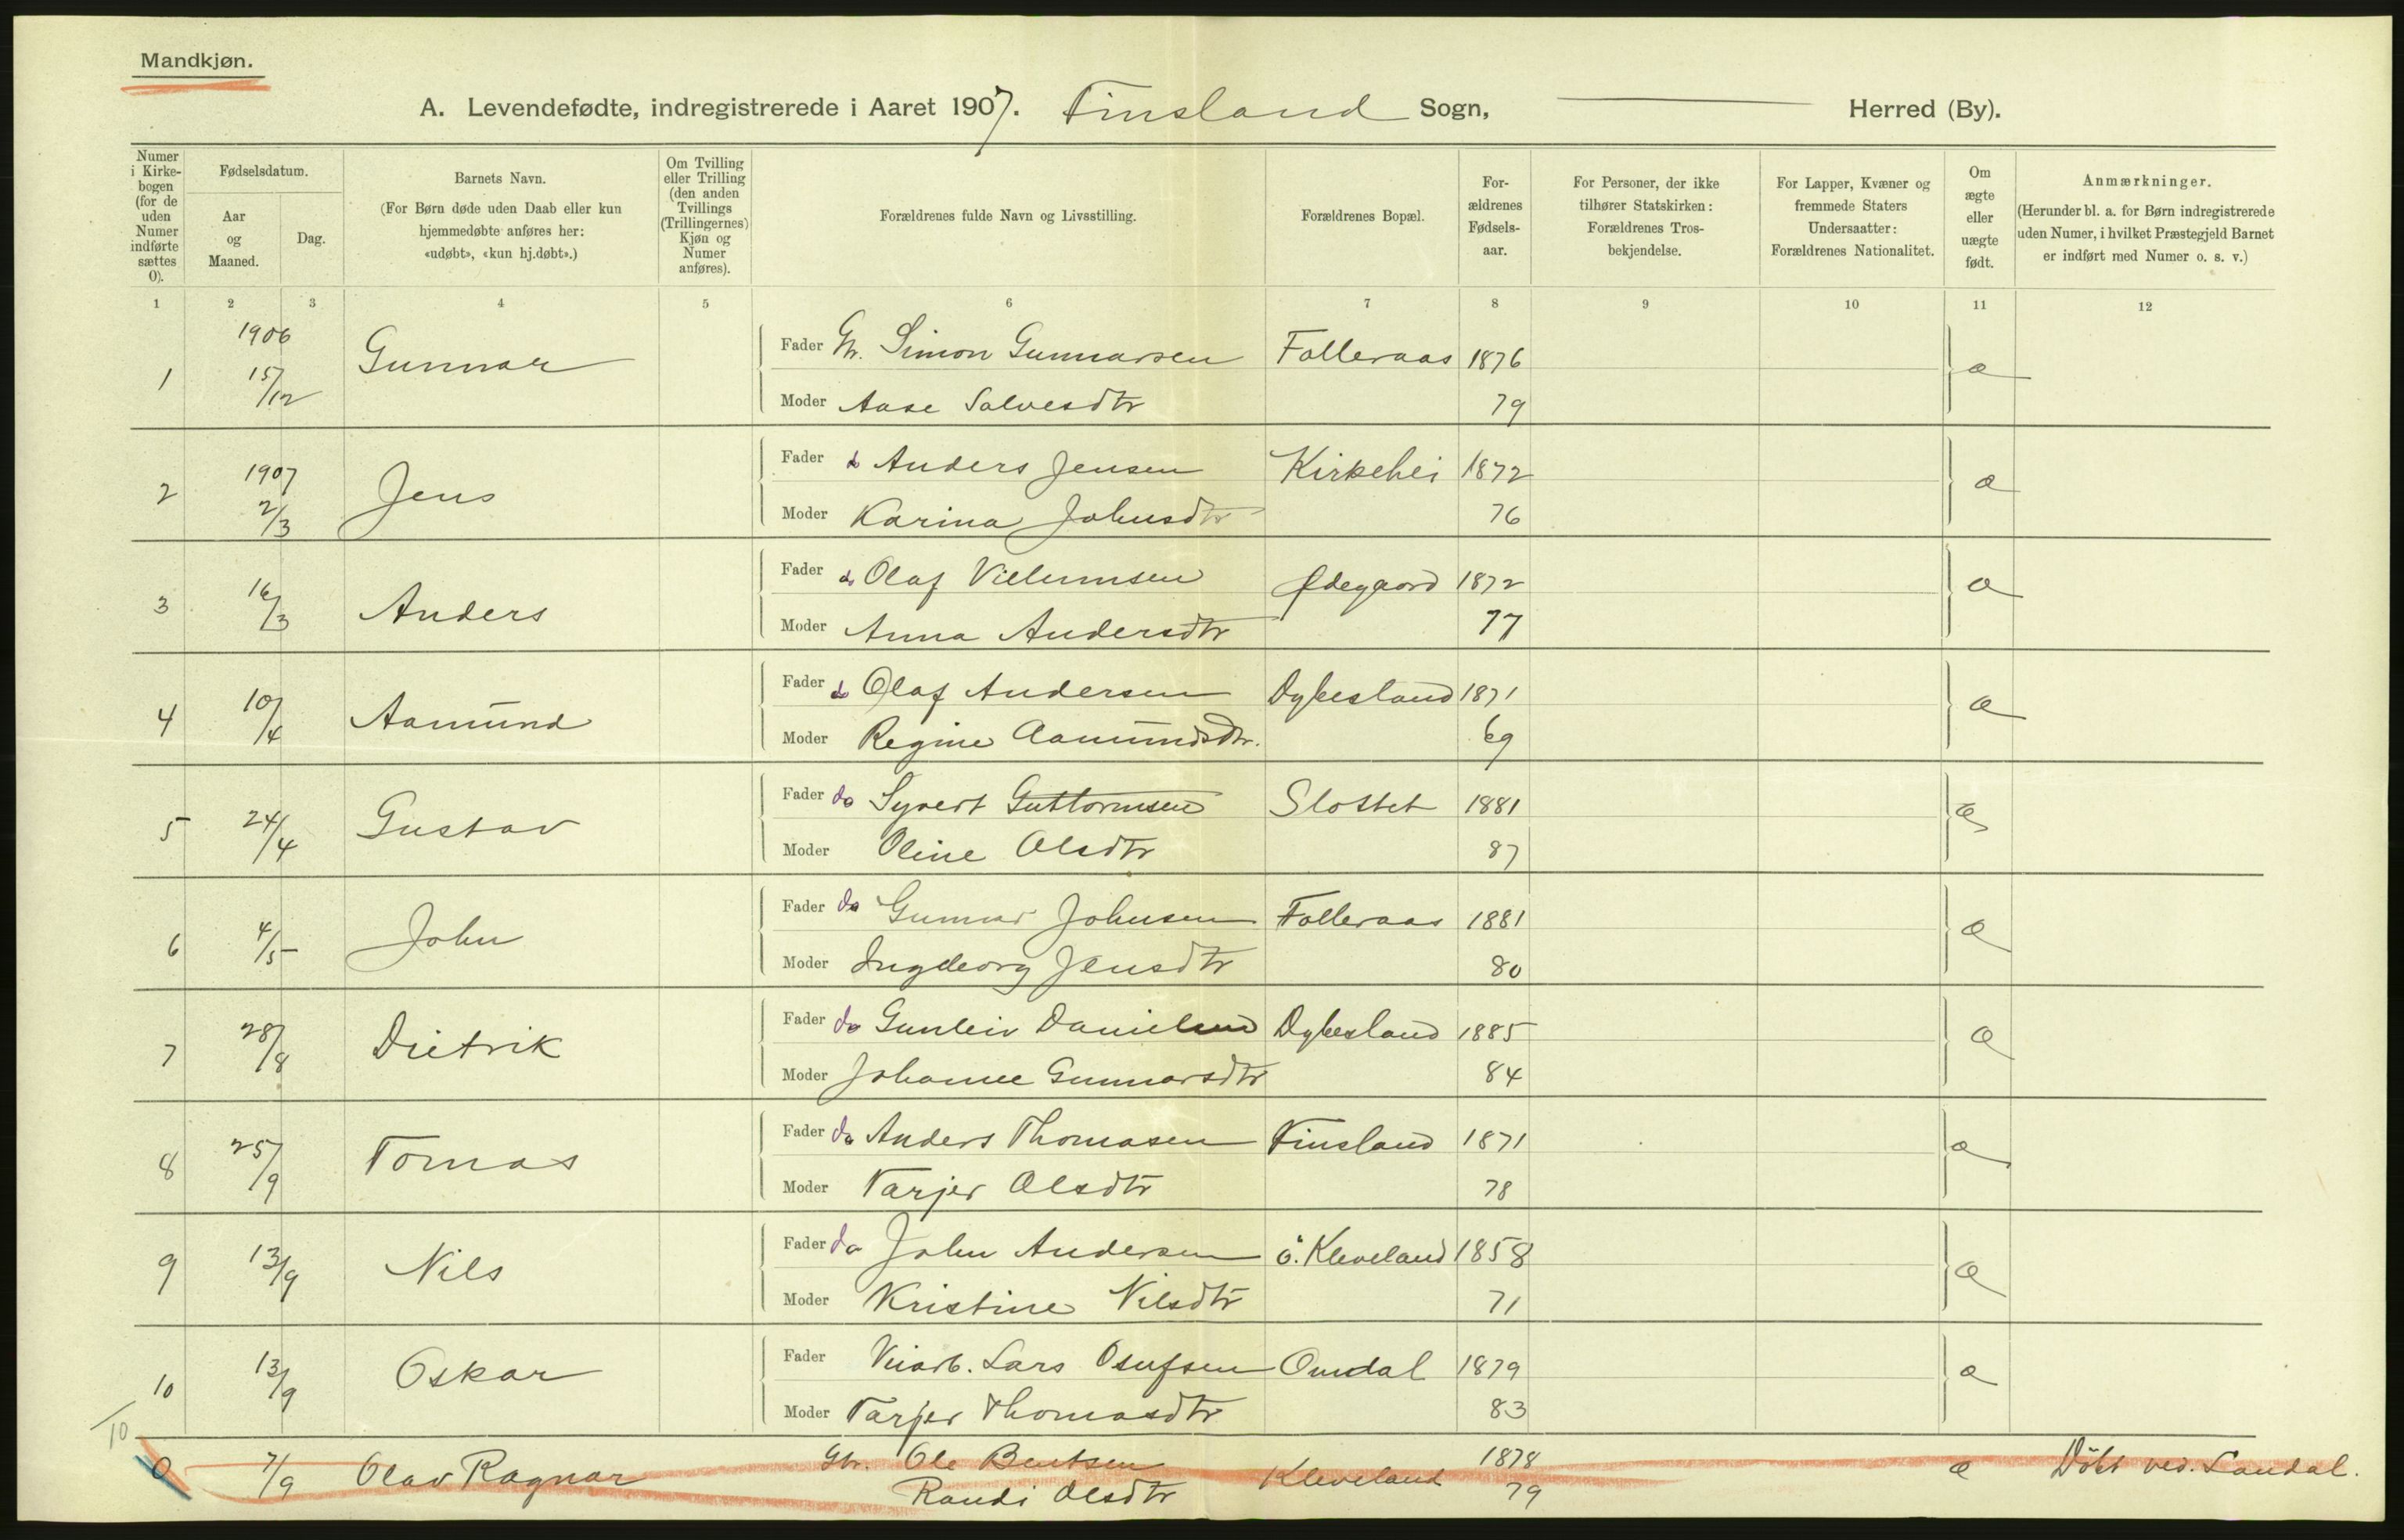 Mandkjøn.
A. Levendefødte, indregistrerede i Aaret 1907. Finsland Sogn, Herred (By).
Numer i Kirkebogen (for de uden Numer indførte sættes 0).
Fødselsdatum.
Aar og Maaned.
Dag.
Barnets Navn.
(For Børn døde uden Daab eller kun hjemmedøbte anføres her: «udøbt», «kun hj.døbt».)
Om Tvilling eller Trilling (den anden Tvillings (Trillingernes) Kjøn og Numer anføres).
Forældrenes fulde Navn og Livsstilling.
Forældrenes Bopæl.
Forældrenes Fødselsaar.
For Personer, der ikke tilhører Statskirken: Forældrenes Trosbekjendelse.
For Lapper, Kvæner og fremmede Staters Undersaatter: Forældrenes Nationalitet.
Om ægte eller uægte født.
Anmærkninger.
(Herunder bl. a. for Børn indregistrerede uden Numer, i hvilket Præstegjeld Barnet er indført med Numer o. s. v.)
1 2 3 4 5 6 7 8 9 10 11 12
1906
1 15/12 Gunnar Fader Gr. Simon Gunnarsen Folleraas 1876 æ
Moder Aase Salvesdtr 79
1907
2 2/3 Jens Fader do Anders Jensen Kirkehei 1872 æ
Moder Karina Johnsdtr 76
3 16/3 Anders Fader do Olaf Villumsen Ødegaard 1872 æ
Moder Anna Andersdtr 77
4 10/4 Aamund Fader do Olaf Andersen Dybesland 1871 æ
Moder Regine Aamundsdtr. 69
5 24/4 Gustav Fader do Syvert Guttormsen Slottet 1881 æ
Moder Oline Olsdtr 87
6 4/5 John Fader do Gunnar Johnsen Folleraas 1881 æ
Moder Ingeborg Jensdtr 80
7 28/8 Dietrik Fader do Gunleiv Danielsen Dybesland 1885 æ
Moder Johanne Gunnarsdtr 84
8 25/9 Tomas Fader do Anders Thomasen Finsland 1871 æ
Moder Tarjer Olsdtr 78
9 13/9 Nils Fader do John Andersen ö. Kleveland 1858 æ
Moder Kristine Nilsdtr 71
10 13/9 Oskar Fader Veiarb. Lars Osufsen Omdal 1879 æ
Moder Tarjer Thomasdtr 83
10
0 7/9 Olav Ragnar Gbr. Ole Bentsen Kleveland 1878 æ Döbt ved. Laudal.
Randi Olsdtr 79